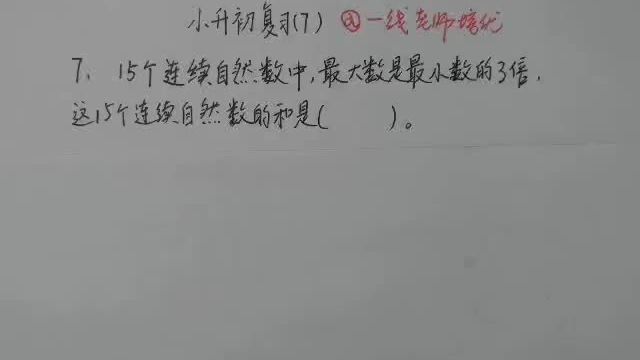 小升初复习(7) @一线老师培优
7、15个连续自然数中,最大数是最小数的3倍,
这15个连续自然数的和是( )。